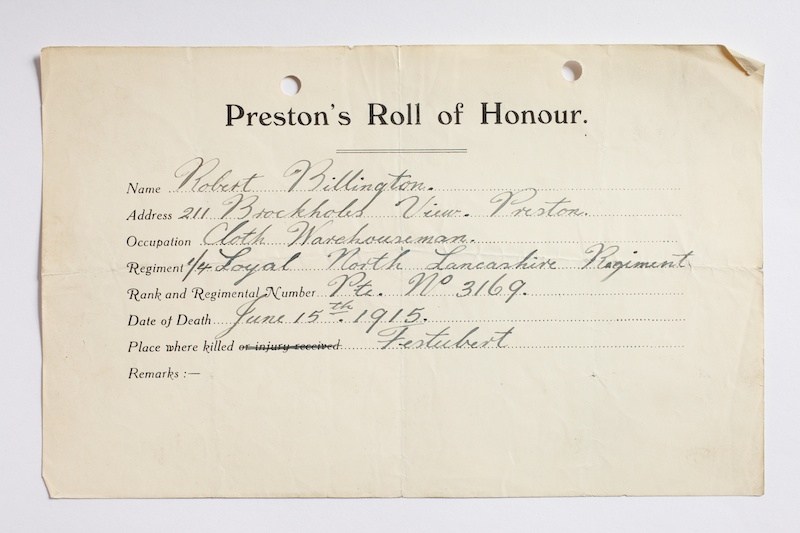 Preston's Roll of Honour.
Name Robert Billington.
Address 211 Brockholes View. Preston.
Occupation Cloth Warehouseman.
Regiment 1/4 Loyal North Lancashire Regiment
Rank and Regimental Number Pte. No 3169.
Date of Death June 15th. 1915.
Place where killed or injury received Festubert
Remarks :—